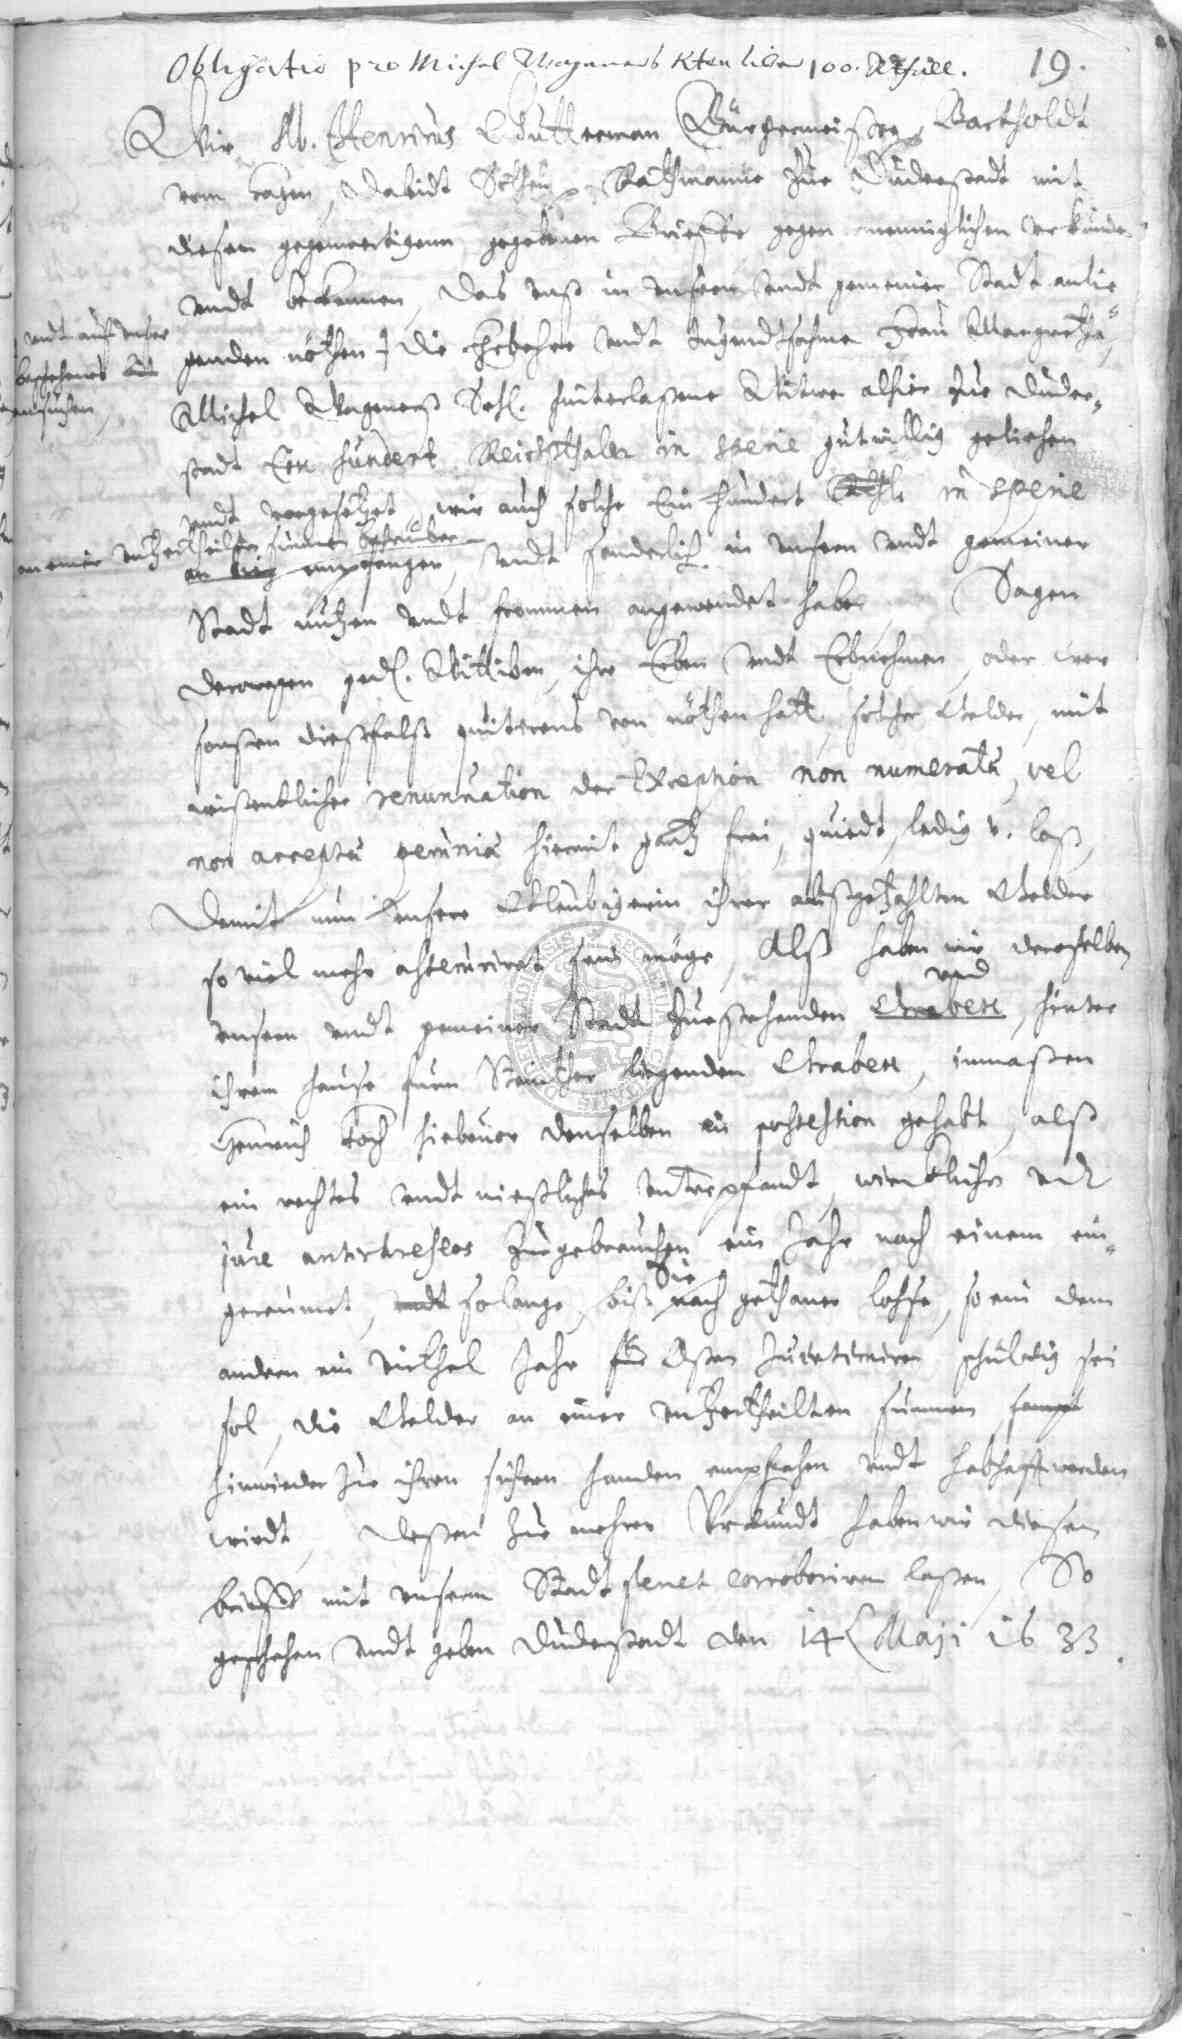 Obligatio pro Michel Wagners Wten uber 100. Rthall.
19.
Wir M. Henricus Gutterman Bürgermeister, Bartholdt
vom Hagen, Davidt Rathmanne zue Duderstadt mit
diesen gegenwertigenn gegebenen Brieffe gegen menniglichen verkunden
undt bekennen, das unß in unsern undt gemeiner Stadt anlie
genden nöthen die Ehrbahre undt tugendtsahme Frau Margretha,
undt auf unser
beschehenes
ansuchen,
Michel Wagenerß Sehl. hinterlaßene Witwe alhie zue Duder-
stadt Ein hundert Reichsthaler in specie gutwillig geliehen
undt vorgesetzet, wir auch solche Ein hundert Rthl. in specie
an einer unzertheilten summen
empfangen, undt sonderlich in unsern undt gemeiner
Stadt nutzen undt frommen angewendet haben, Sagen
derowegen ged. Wittiben, ihre Erben undt Erbnehmen, oder wer
sonsten dießfalß quitirens von nöthen hatt, solcher Gelder, mit
wißentlicher renunciation der Exception non numeratæ, vel
non acceptæ pecuniæ hiermit gantz frei, quiedt, ledig v. loß,
Damit nun unsere Gläubigerin ihrer außgezahlten Gelder
so viel mehr assecuriret sein möge, Alß haben wir derselben
und
unsern undt gemeiner Stadt zuestehenden Graben, hinter
ihrem hause furm Steinthor liegenden Graben, inmaßen
Henrich Koch hiebevor denselben in possession gehabt, alß
ein rechtes undt nießliches unterpfandt, wircklich und
jure antichreseos zuegebrauchen ein Jahr nach einem ein-
Sie
geraumet, undt solange, biß nach gethaner loßse, so ein dem
andern ein viethel Jahr für Ostern zu schuldig sei
sol, die Gelder an einer unzertheilten summen sampt
hinwieder zue ihren sichern handen empfahen undt habhafft werden
wirdt, Deßen zue mehrer Uhrkundt haben wir diesen
brieff mit unserm Stadt secret corroboriren laßen, So
geschehen undt geben Duderstadt den 14 Maji 1633.